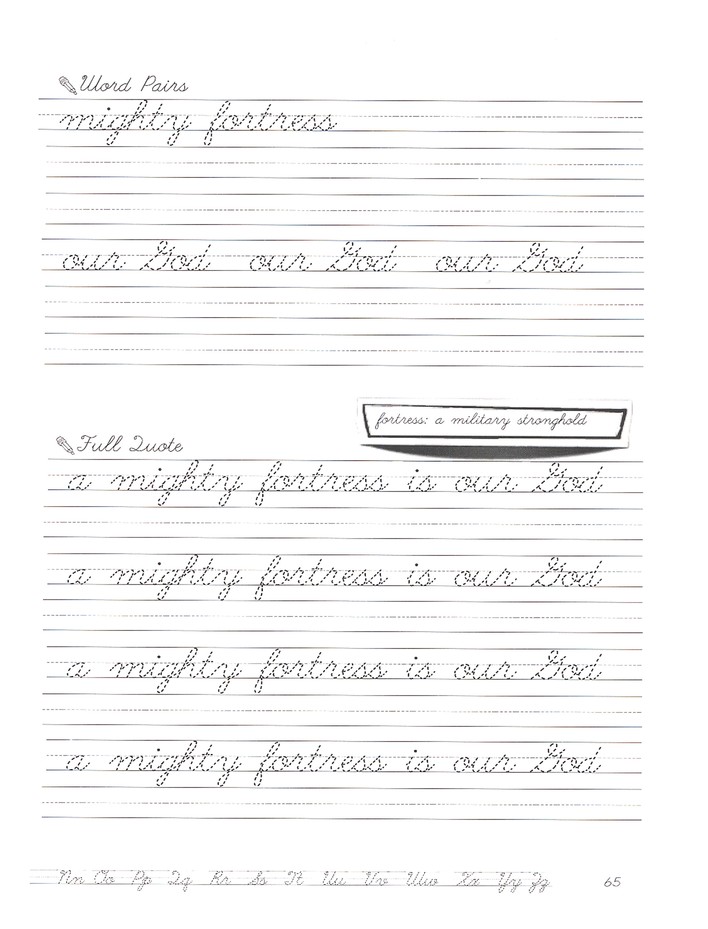 Word Pairs
mighty fortress
our God our God our God
fortress: a military stronghold
Full Quote
a mighty fortress is our God
a mighty fortress is our God
a mighty fortress is our God
a mighty fortress is our God
Nn Oo Pp Qq Rr Ss Tt Uu Vv Ww Xx Yy Zz 65